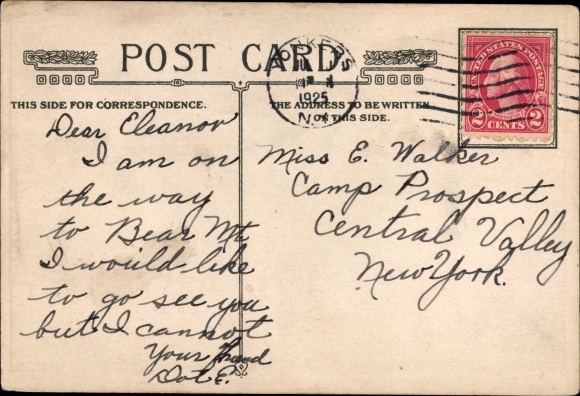 POST CARD
YONKERS
1925
N.Y.
UNITED STATES POSTAGE
2 CENTS 2
THIS SIDE FOR CORRESPONDENCE.
THE ADDRESS TO BE WRITTEN
ON THIS SIDE.
Dear Eleanor
I am on
the way
to Bear Mt.
I would like
to go see you
but I cannot
Your friend
Dot E.
Miss E. Walker
Camp Prospect
Central Valley
New York.